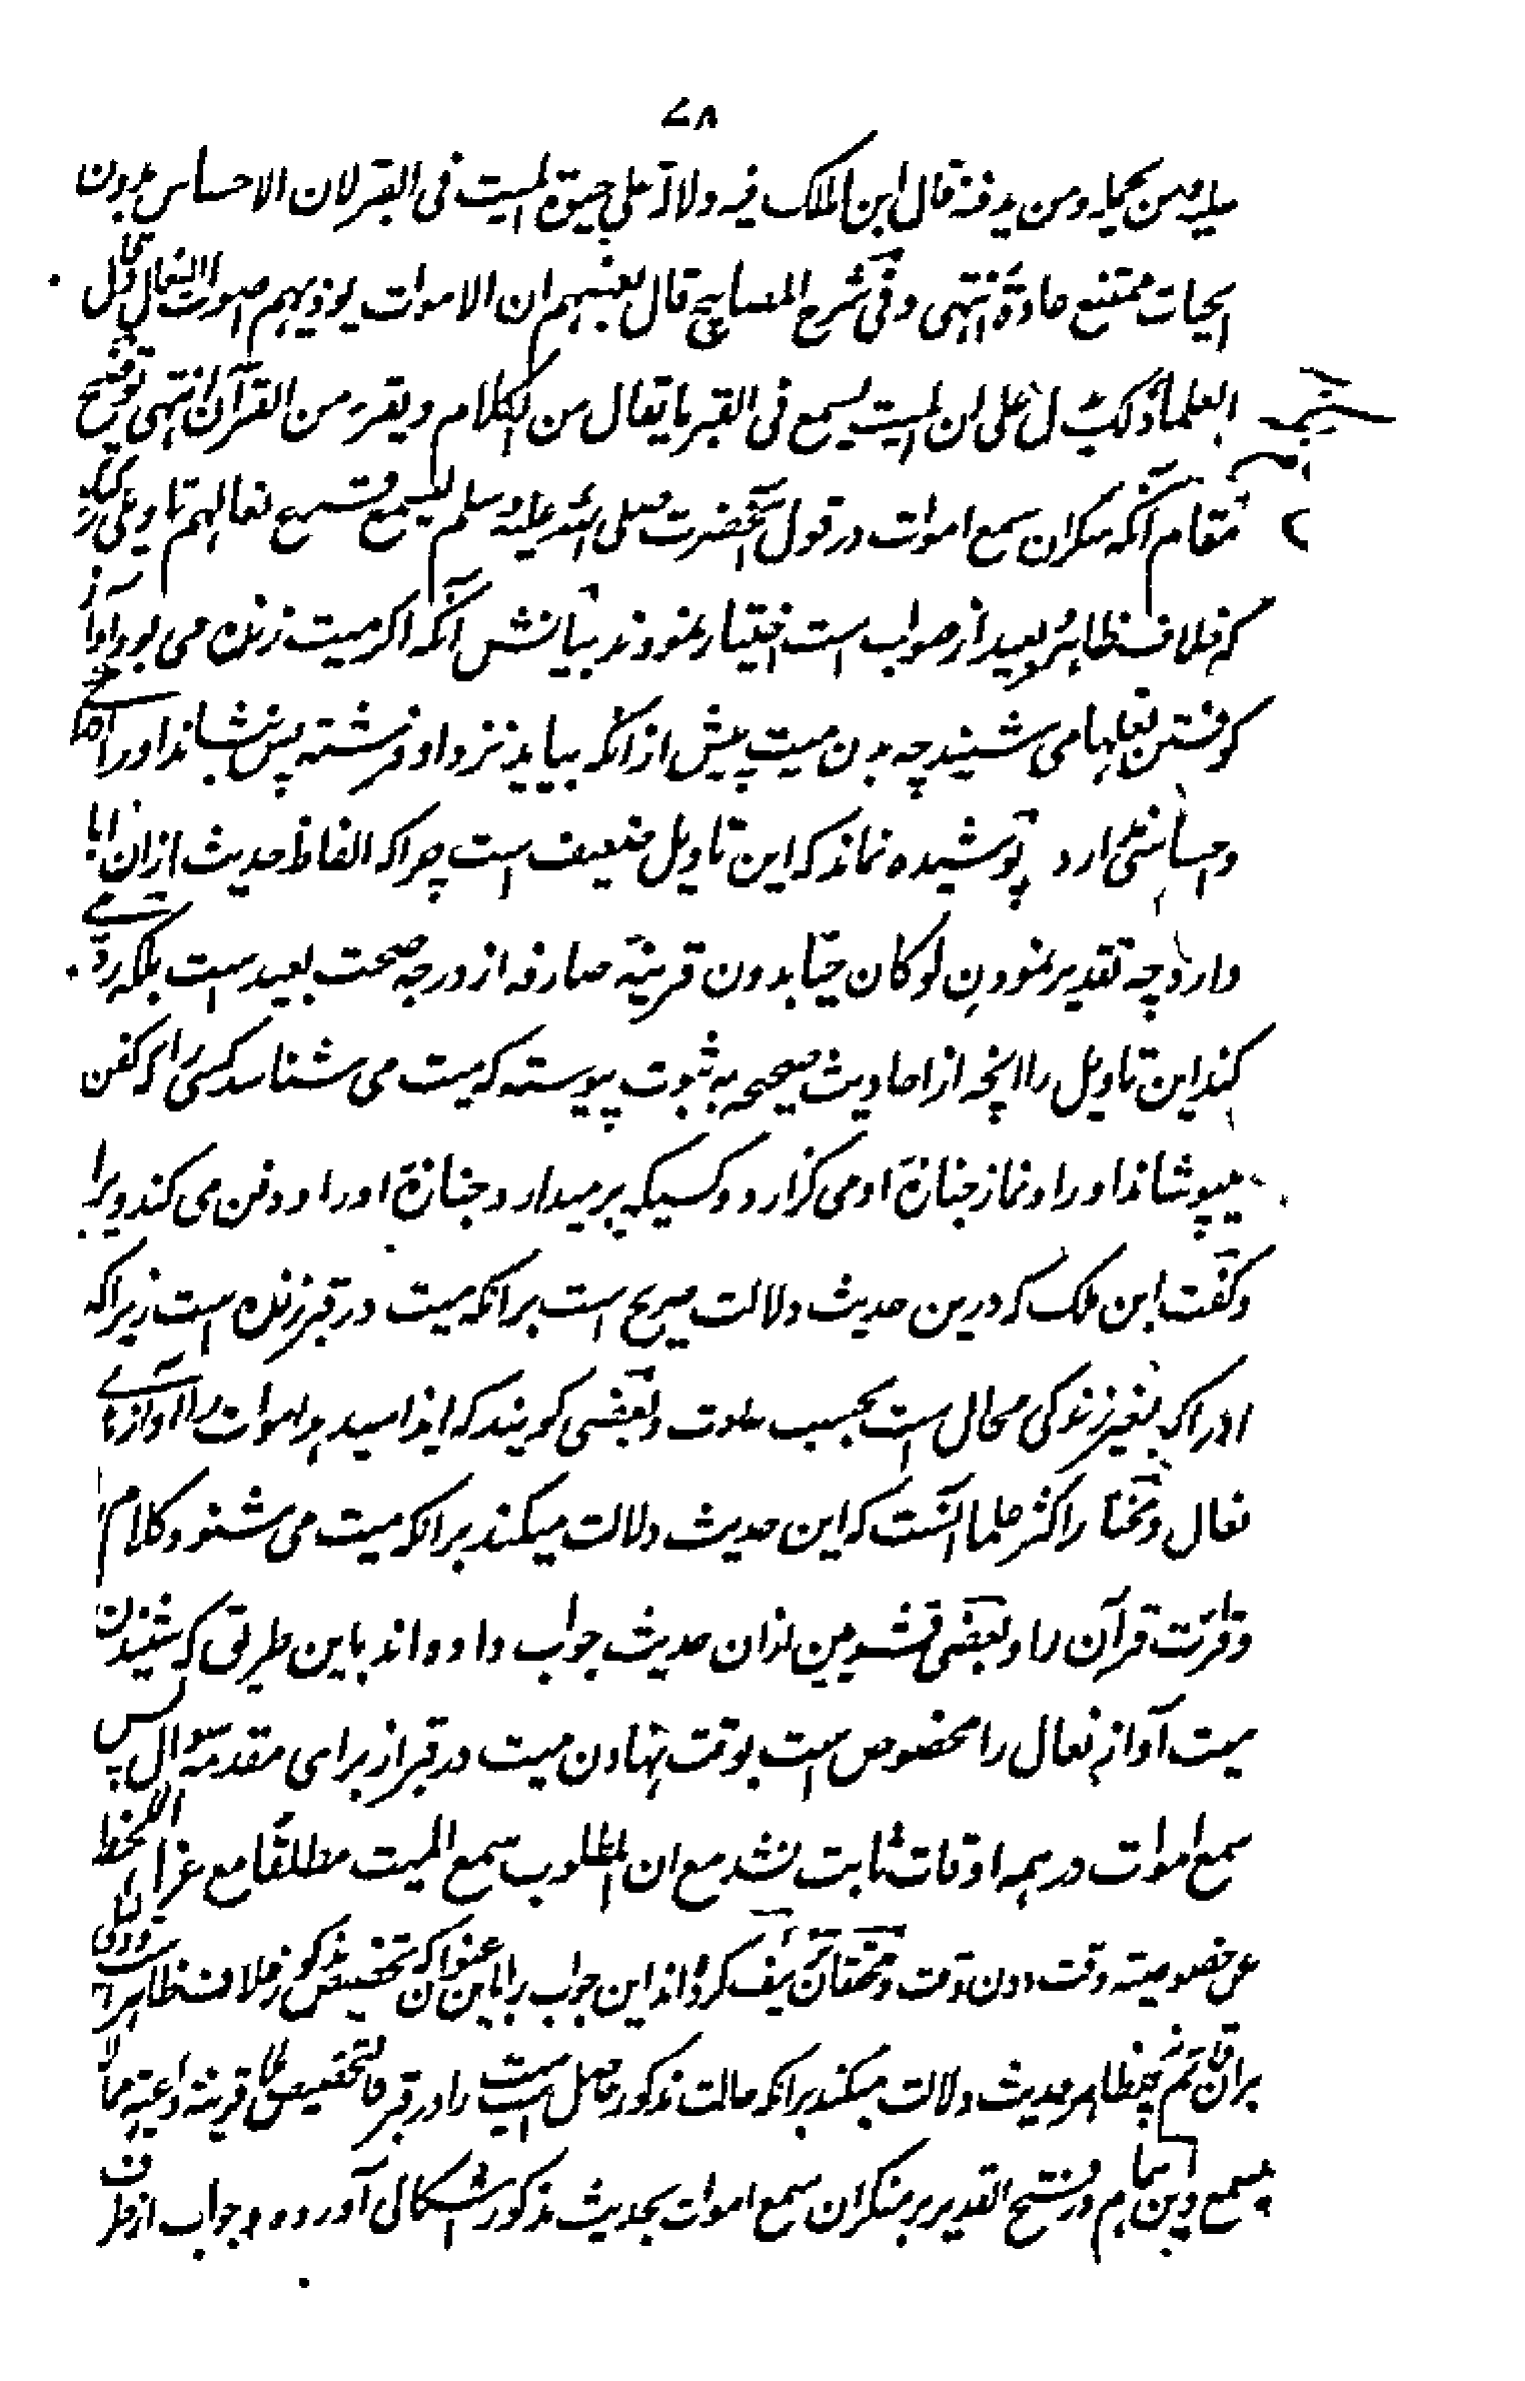 ۷۸
علیه من یحمله ومن یدفنه قال ابن الملک فیه دلالة علی حیوة المیت فی القبر لان الاحساس بدون
الحیات ممتنع عادة انتهی وفی شرح المصابیح قال بعضهم ان الاموات یوذیهم صوت النعال
العلماء ذلک یدل علی ان المیت یسمع فی القبر ما یقال من الکلام ویقرء من القرآن انتهی توضیح
مقام آنکه منکران سمع اموات در قول آنحضرت صلی الله علیه وسلم لیسمع قرع نعالهم تاویلی
که خلاف ظاهر و بعید از صواب است اختیار نمودند بیانش آنکه اگر میت زنده می بود آواز
کوفتن نعلها می شنید چه بدن میت پیش از انکه بیاید نزد او فرشته پس بنشاند او را
و حسا نمی دارد پوشیده نماند که این تاویل ضعیف است چرا که الفاظ حدیث ازان ابا
دارد چه تقدیر نمودن لو کان حیّا بدون قرینهٔ صارفه از درجه صحت بعید است بلکه رد
کند این تاویل را انچه از احادیث صحیحه به ثبوت پیوسته که میت می شناسد کسی را که کفن
میپوشاند او را و نماز جنازهٔ او می گزارد و کسیکه برمیدارد جنازهٔ او را و دفن می کند ویرا
و گفت ابن ملک که درین حدیث دلالت صریح است برانکه میت در قبر زنده است زیرا که
ادراک بغیر زندگی محال است بحسب عادت و بعضی گویند که ایذا میدهد اموات را آوازهای
نعال و مختار اکثر علما آنست که این حدیث دلالت میکند برانکه میت می شنود کلام
و قرئت قرآن را و بعضی قشریین ازان حدیث جواب داده اند باین طریق که شنیدن
میت آواز نعال را مخصوص است بوقت نهادن میت در قبر از برای مقدمه سوال پس
سمع اموات در همه اوقات ثابت نشد مع ان المطلوب سمع المیت مطلقًا مع عزل اللحظ
عن خصوصیته وقت دون وقت و محققان تزییف کرده اند این جواب را باین عنوان که تخصیص مذکور خلاف ظاهر
بران قائم نه چه ظاهر حدیث دلالت میکند برانکه حالت مذکور حاصل است میت را در قبر فالتخصیص بلا قرینه داعیته مما لا
یسمع و ابن همام در فتح القدیر بر منکران سمع اموات بحدیث مذکور اشکالی آورده و جواب از طرف